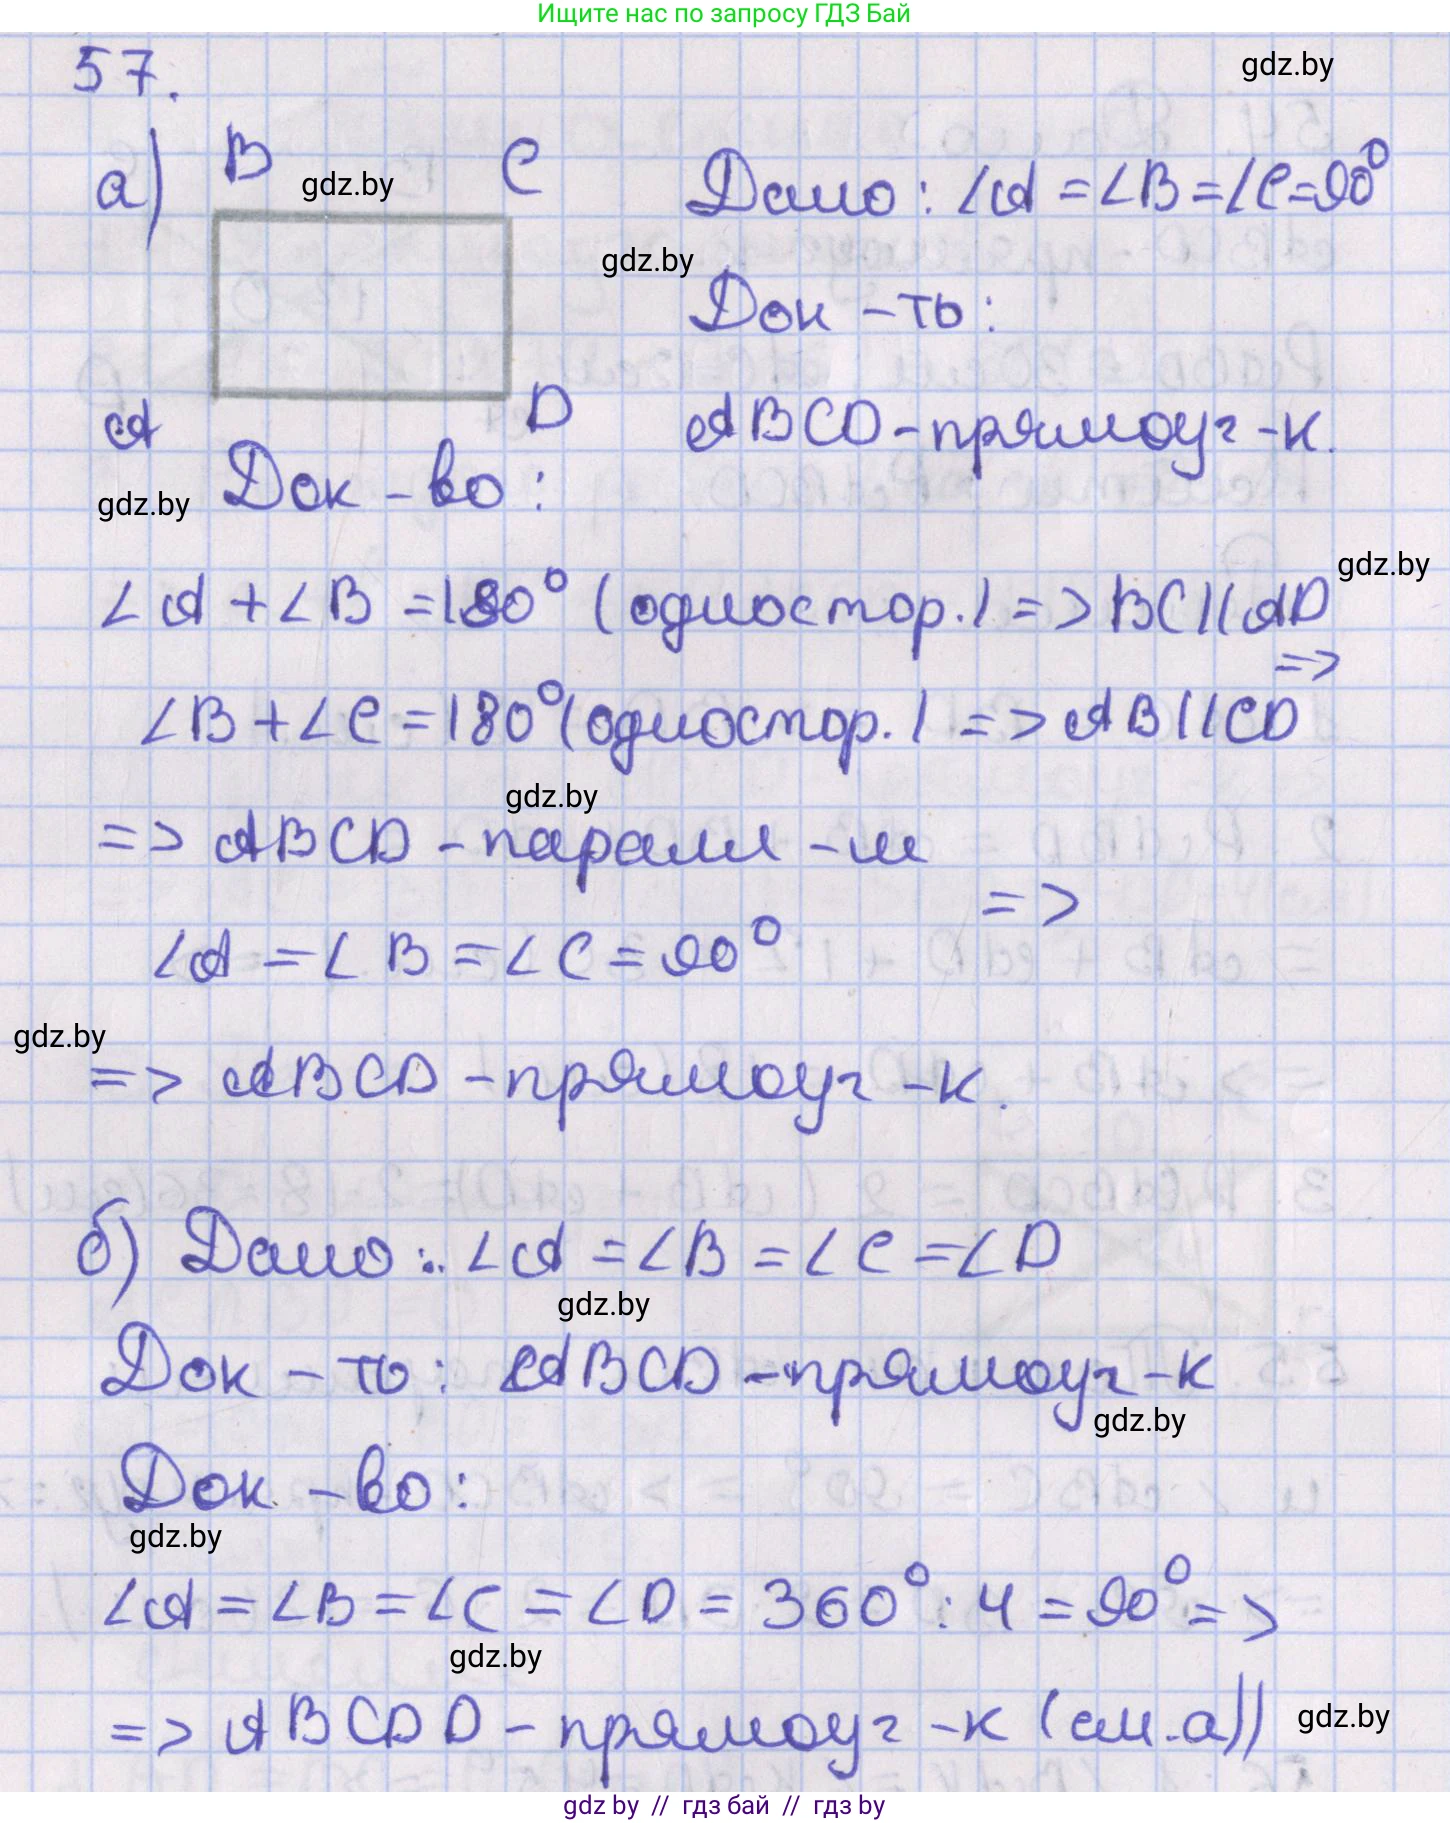 Ищите нас по запросу ГДЗ Бай
57.
gdz.by
а) B C Дано: ∠A = ∠B = ∠C = 90°
gdz.by
gdz.by
Док-ть:
A D ABCD - прямоуг-к.
Док-во:
gdz.by
gdz.by
∠A + ∠B = 180° (одностор.) => BC || AD
=>
∠B + ∠C = 180° (одностор.) => AB || CD
gdz.by
=> ABCD - паралл-м
=>
∠A = ∠B = ∠C = 90°
gdz.by
=> ABCD - прямоуг-к.
б) Дано: ∠A = ∠B = ∠C = ∠D
gdz.by
Док-ть: ABCD - прямоуг-к
gdz.by
Док-во:
gdz.by
∠A = ∠B = ∠C = ∠D = 360° : 4 = 90° =>
gdz.by
=> ABCDD - прямоуг-к (см. а))
gdz.by
gdz by // гдз бай // гдз by